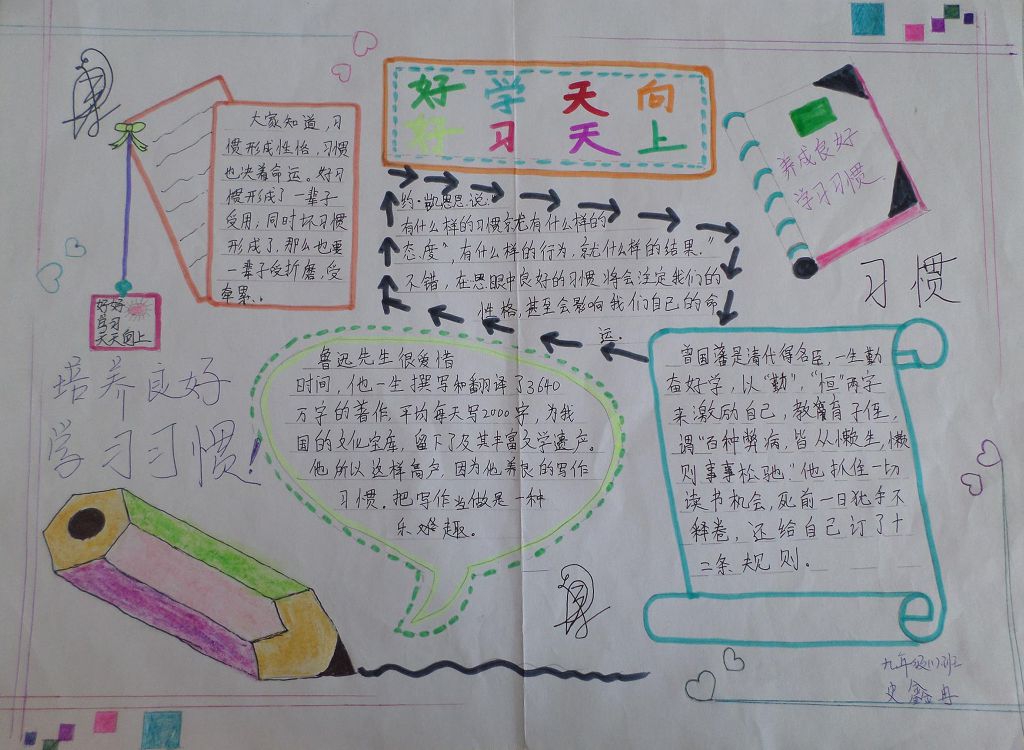 好学天向
好习天上
大家知道，习
惯形成性怡，习惯
也决着命运。好习
惯形成了一辈子
受用；同时坏习惯
形成了，那么也要
一辈子受折磨，受
牵累、
好好
学习
天天向上
约·凯恩思说：
有什么样的习惯就尤有什么样的
态度〝，有什么样的行为，就什么样的结果。”
不错，在思眼中良好的习惯将会注定我们的
性格，甚至会影响我们自己的命
运．
养成良好
学习习惯
习惯
培养良好
学习习惯！
鲁迅先生很爱惜
时间，他一生撰写和翻译了3640
万字的著作，平均每天写2000字，为我
国的文化宝库，留下了及其丰富文学遗产。
他所以这样高夕，因为他养良的写作
习惯。把写作当做是一种
乐趣。
曾国藩是清仕得名臣，一生勤
奋好学，以“勤”，“恒”两字
来激励自己，教育子侄，
谓“百种弊病，皆从懒生，懒
则事事松驰．”他抓住一切
读书机会，死前一日犹手不
释卷，还给自己订了十
二条规则．
九年级(1)班
史鑫冉